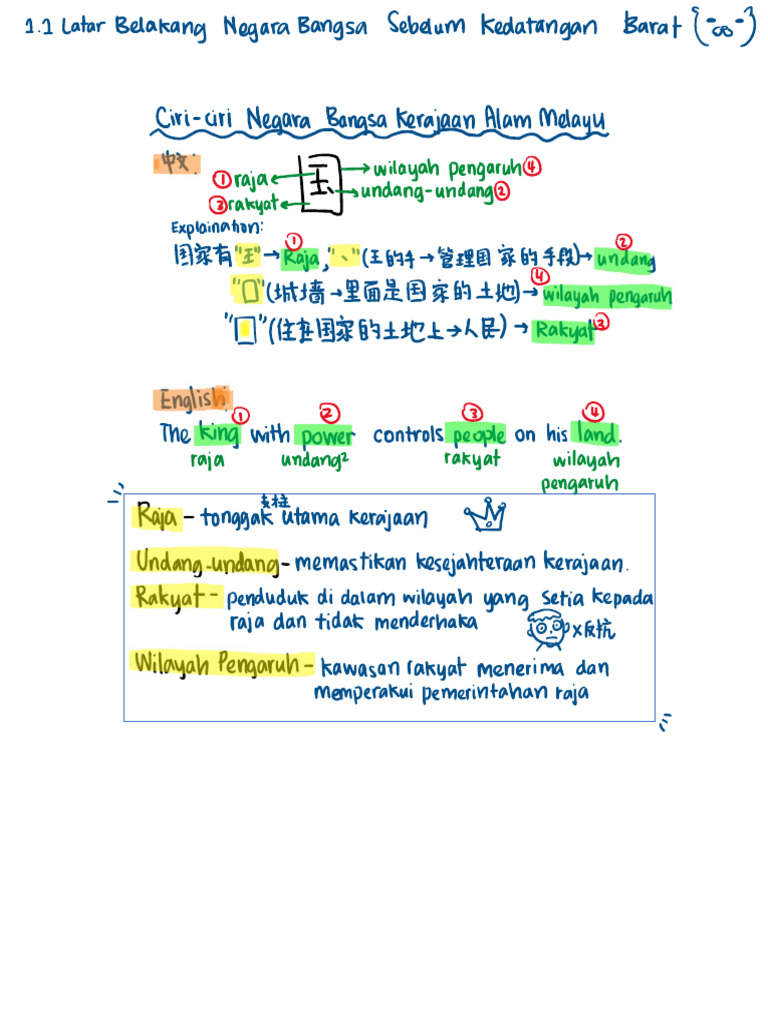 1.1 Latar Belakang Negara Bangsa Sebelum Kedatangan Barat
Ciri-ciri Negara Bangsa Kerajaan Alam Melayu
中文:
国
① raja
③ rakyat
wilayah pengaruh ④
undang-undang ②
Explaination:
国家有"王" → Raja ①, "、" (王的手 → 管理国家的手段) → undang ②
"口" (城墙 → 里面是国家的土地) → wilayah pengaruh ④
"囗" (住在国家的土地上 → 人民) → Rakyat ③
English:
① ② ③ ④
The king with power controls people on his land.
raja undang² rakyat wilayah pengaruh
支柱
Raja – tonggak utama kerajaan
Undang-undang - memastikan kesejahteraan kerajaan.
Rakyat – penduduk di dalam wilayah yang setia kepada
raja dan tidak menderhaka
x反抗
Wilayah Pengaruh – kawasan rakyat menerima dan
memperakui pemerintahan raja